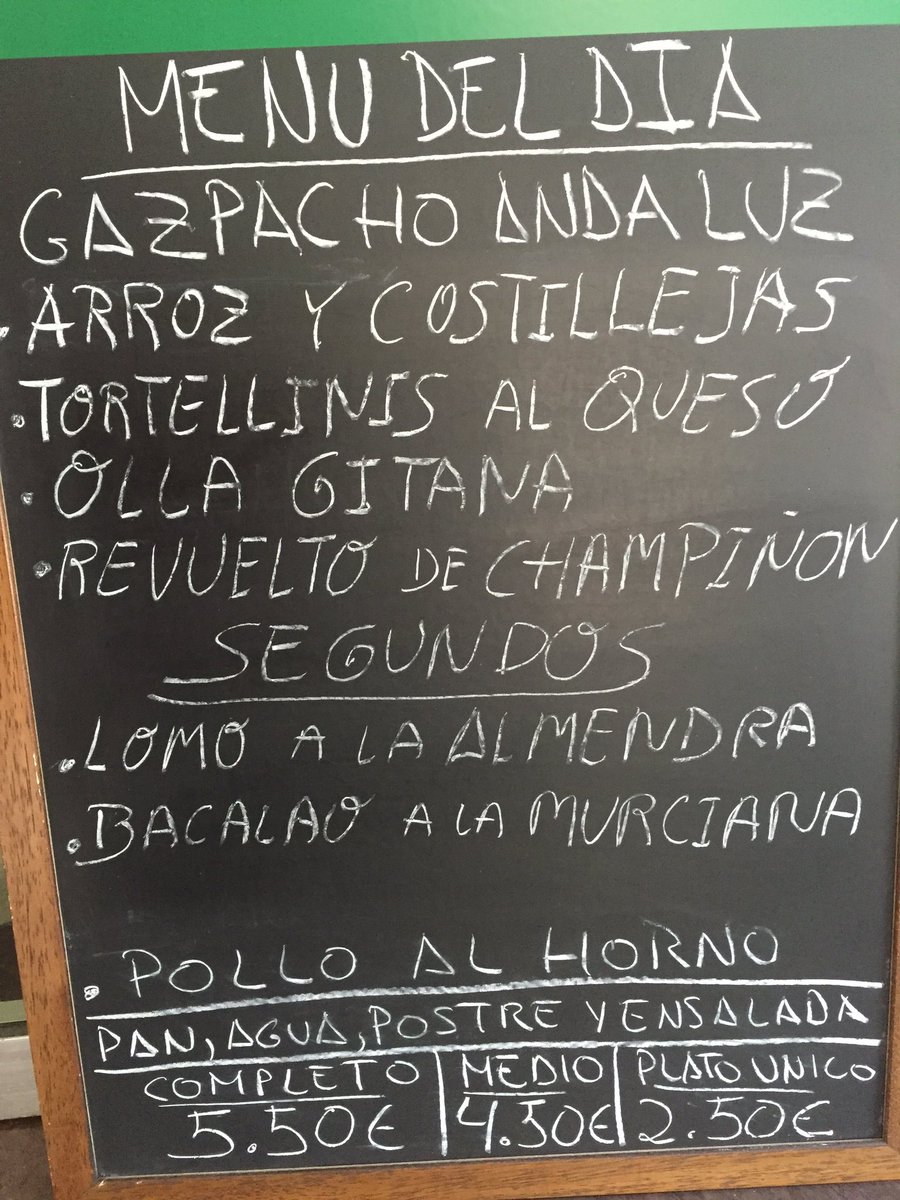 MENU DEL DIA
GAZPACHO ANDALUZ
.ARROZ Y COSTILLEJAS
.TORTELLINIS AL QUESO
.OLLA GITANA
.REVUELTO DE CHAMPIÑON
SEGUNDOS
.LOMO A LA ALMENDRA
.BACALAO A LA MURCIANA
.POLLO AL HORNO
PAN, AGUA, POSTRE Y ENSALADA
COMPLETO MEDIO PLATO UNICO
5.50€ 4.50€ 2.50€